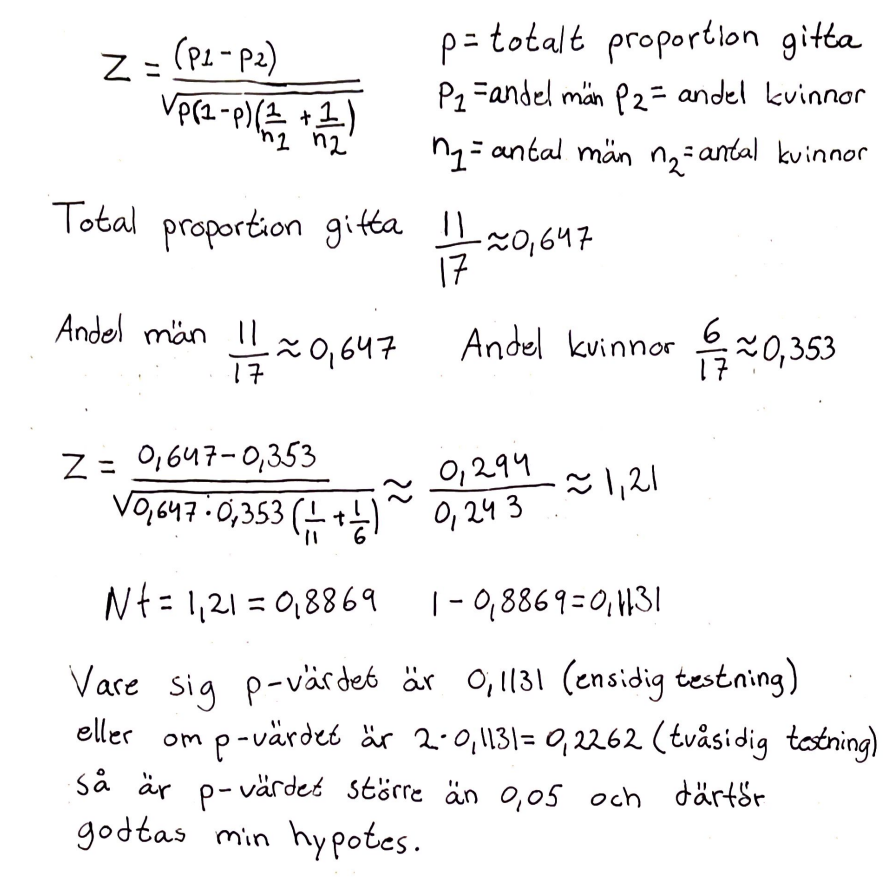 Z = (p1-p2) / √p(1-p)(1/n1 + 1/n2)
p = totalt proportion gifta
p1 = andel män p2 = andel kvinnor
n1 = antal män n2 = antal kvinnor
Total proportion gifta 11/17 ≈ 0,647
Andel män 11/17 ≈ 0,647 Andel kvinnor 6/17 ≈ 0,353
Z = 0,647-0,353 / √0,647·0,353 (1/11 + 1/6) ≈ 0,294/0,243 ≈ 1,21
Nt = 1,21 = 0,8869 1-0,8869=0,1131
Vare sig p-värdet är 0,1131 (ensidig testning)
eller om p-värdet är 2·0,1131=0,2262 (tvåsidig testning)
så är p-värdet större än 0,05 och därför
godtas min hypotes.